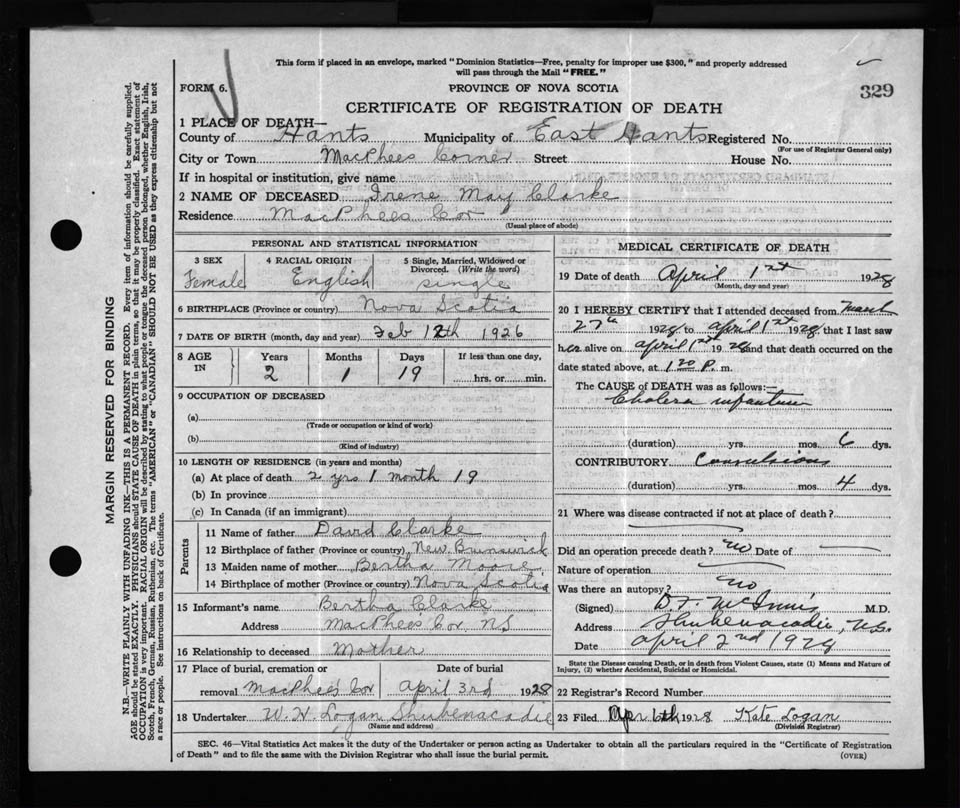 This form if placed in an envelope, marked "Dominion Statistics—Free, penalty for improper use $300," and properly addressed
will pass through the Mail "FREE."
FORM 6.
PROVINCE OF NOVA SCOTIA
329
CERTIFICATE OF REGISTRATION OF DEATH
1 PLACE OF DEATH—
County of Hants Municipality of East Hants Registered No.
(For use of Registrar General only)
City or Town MacPhees Corner Street House No.
If in hospital or institution, give name
2 NAME OF DECEASED Irene May Clarke
Residence MacPhees Cor
(Usual place of abode)
PERSONAL AND STATISTICAL INFORMATION
3 SEX Female
4 RACIAL ORIGIN English
5 Single, Married, Widowed or
Divorced. (Write the word)
single
6 BIRTHPLACE (Province or country) Nova Scotia
7 DATE OF BIRTH (month, day and year) Feb 12th 1926
8 AGE IN
Years Months Days If less than one day,
2 1 19 hrs. or min.
9 OCCUPATION OF DECEASED
(a)
(Trade or occupation or kind of work)
(b)
(Kind of industry)
10 LENGTH OF RESIDENCE (in years and months)
(a) At place of death 2 yrs 1 month 19
(b) In province
(c) In Canada (if an immigrant)
Parents
11 Name of father David Clarke
12 Birthplace of father (Province or country) New Brunswick
13 Maiden name of mother Bertha Moore
14 Birthplace of mother (Province or country) Nova Scotia
15 Informant's name Bertha Clarke
Address MacPhees Cor, NS
16 Relationship to deceased Mother
17 Place of burial, cremation or Date of burial
removal MacPhee's Cor April 3rd 1928
18 Undertaker W. H. Logan Shubenacadie
(Name and address)
MEDICAL CERTIFICATE OF DEATH
19 Date of death April 1st 1928
(Month, day and year)
20 I HEREBY CERTIFY that I attended deceased from March
27th 1928 to April 1st 1928 that I last saw
her alive on April 1st 1928 and that death occurred on the
date stated above, at 1 20 P. m.
The CAUSE of DEATH was as follows:—
Cholera infantum
(duration) yrs. mos. 6 dys.
CONTRIBUTORY Convulsions
(duration) yrs. mos. 4 dys.
21 Where was disease contracted if not at place of death?
Did an operation precede death? no Date of
Nature of operation
Was there an autopsy? no
(Signed) D. F. McInnis M.D.
Address Shubenacadie, N.S.
Date April 2nd 1928
State the Disease causing Death, or in death from Violent Causes, state (1) Means and Nature of
Injury, (2) whether Accidental, Suicidal or Homicidal.
22 Registrar's Record Number
23 Filed Apr 6th 1928 Kate Logan
(Division Registrar)
SEC. 46—Vital Statistics Act makes it the duty of the Undertaker or person acting as Undertaker to obtain all the particulars required in the "Certificate of Registration
of Death" and to file the same with the Division Registrar who shall issue the burial permit.
(OVER)
MARGIN RESERVED FOR BINDING
N.B.—WRITE PLAINLY WITH UNFADING INK—THIS IS A PERMANENT RECORD. Every item of information should be carefully supplied.
AGE should be stated EXACTLY. PHYSICIANS should STATE CAUSE OF DEATH in plain terms, so that it may be properly classified. Exact statement of
OCCUPATION is very important. RACIAL ORIGIN will be described by stating to what people or tongue the deceased person belonged, whether English, Irish,
Scotch, French, German, Russian, Ruthenian, etc. The terms "AMERICAN" or "CANADIAN" SHOULD NOT BE USED as they express citizenship but not
a race or people. See instructions on back of Certificate.